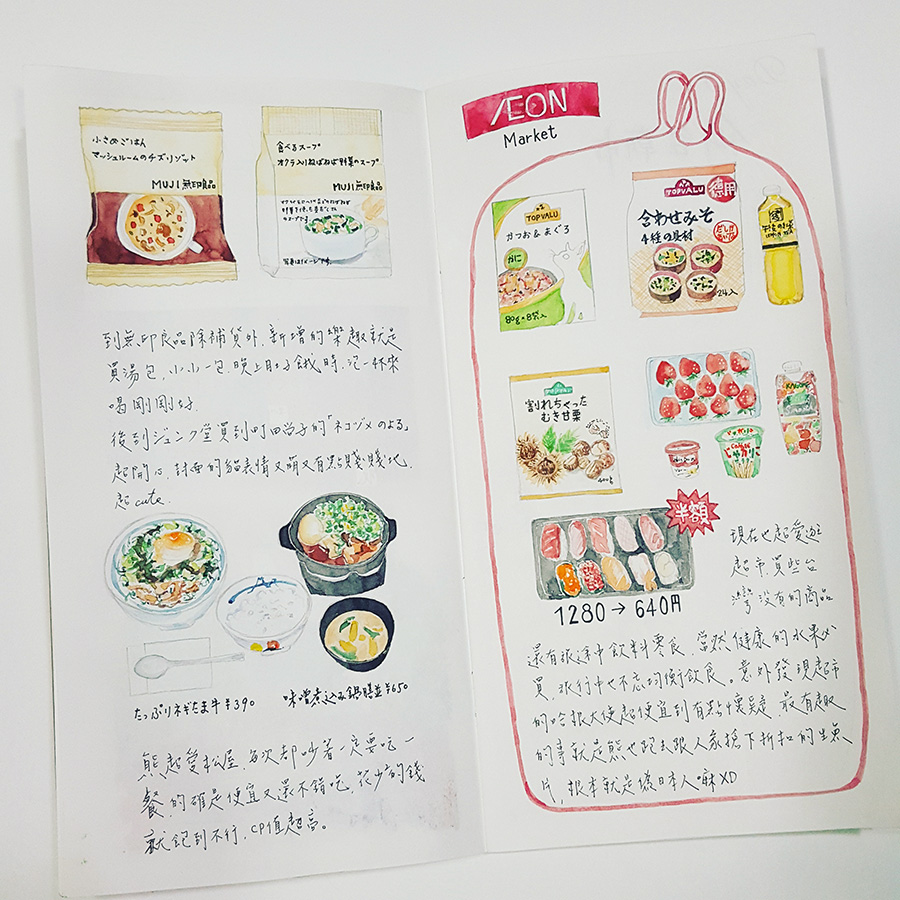 小さめごはん
マッシュルームのチーズリゾット
MUJI 無印良品
食べるスープ
オクラ入りねばねば野菜のスープ
MUJI 無印良品
写真はイメージです。
到無印良品除補貨外，新增的樂趣就是
買湯包，小小一包，晚上肚子餓時，泡一杯來
喝剛剛好.
後到ジュンク堂買到町田尚子的「ネコヅメのよる」
超開心，封面的貓表情又萌又有點賤賤地，
超cute.
たっぷりネギたま牛¥390
味噌煮込み鍋膳並¥650
熊超愛松屋，每次都吵著一定要吃一
餐，的確是便宜又還不錯吃，花少少的錢
就飽到不行，CP值超高。
ÆON
Market
TOPVALU
かつお&まぐろ
かに
80g×8袋入
TOPVALU
徳用
合わせみそ
4種の具材
24入
TOPVALU
割れちゃった
むき甘栗
400g
KAGOME
じゃがりこ
半額
1280→640円
現在也超愛逛
超市，買些台
灣沒有的商品
還有旅途中飲料零食，當然健康的水果必
買，旅行中也不忘均衡飲食。意外發現超市
的哈根大使超便宜到有點懷疑，最有趣
的事就是熊也跑去跟人家搶下折扣的生魚
片，根本就是當日本人嘛XD